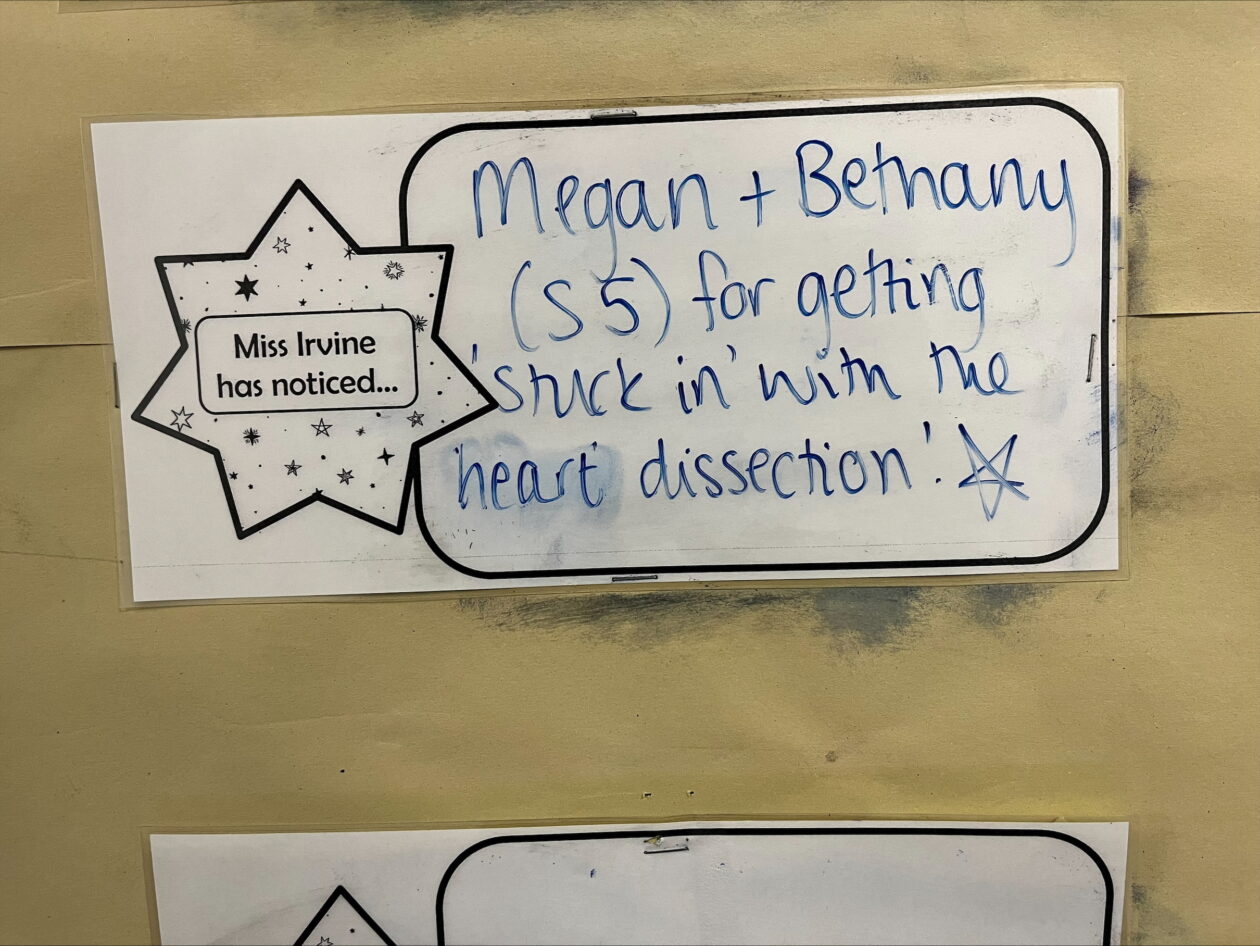 Miss Irvine
has noticed...
Megan + Bethany
(S5) for getting
'stuck in' with the
heart dissection!